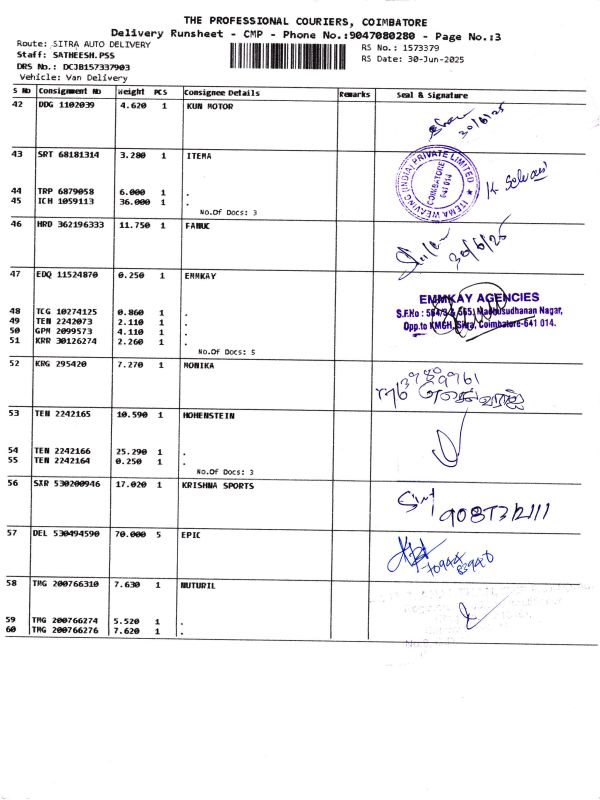 THE PROFESSIONAL COURIERS, COIMBATORE
Delivery Runsheet - CMP - Phone No.:9047080280 - Page No.:3
Route: SITRA AUTO DELIVERY
Staff: SATHEESH.PSS
DRS No.: DCJB157337903
Vehicle: Van Delivery
RS No.: 1573379
RS Date: 30-Jun-2025
S No Consignment No Weight PCS Consignee Details Remarks Seal & Signature
42 DDG 1102039 4.620 1 KUN MOTOR
30/6/25
43 SRT 68181314 3.280 1 ITEMA
ITEMA WEAVING (INDIA) PRIVATE LIMITED ★
COIMBATORE
641 014
K Selvam
44 TRP 6879058 6.000 1 .
45 ICH 1059113 36.000 1 .
No.Of Docs: 3
46 HRD 362196333 11.750 1 FANUC
30/6/25
47 EDQ 11524870 0.250 1 EMMKAY
EMMKAY AGENCIES
Opp.to KMCH, Sitra, Coimbatore-641 014.
48 TCG 10274125 0.860 1 .
49 TEN 2242073 2.110 1 .
50 GPM 2099573 4.110 1 .
51 KRR 30126274 2.260 1 .
No.Of Docs: 5
52 KRG 295420 7.270 1 MONIKA
53 TEN 2242165 10.590 1 HOHENSTEIN
54 TEN 2242166 25.290 1 .
55 TEN 2242164 0.250 1 .
No.Of Docs: 3
56 SXR 530200946 17.020 1 KRISHNA SPORTS
57 DEL 530494590 70.000 5 EPIC
58 TMG 200766310 7.630 1 NUTURIL
59 TMG 200766274 5.520 1 .
60 TMG 200766276 7.620 1 .